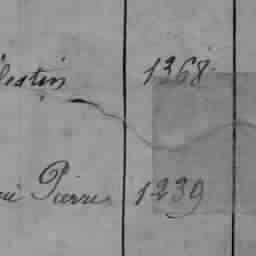 lestin 1368
Pierre 1239